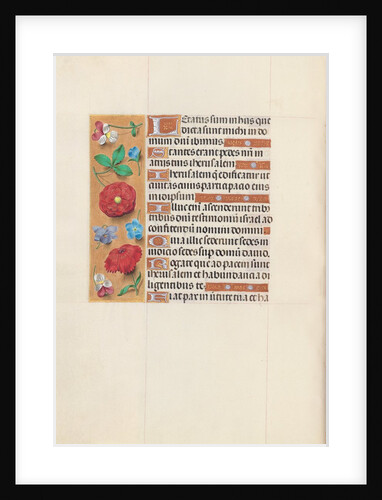 Letatus sum in his que
dicta sunt michi in do
mum dni ibimus
Stantes erant pedes nri in
atriis tuis iherusalem
Iherusalem que edificatur ut
civitas cuius participatio eius
in idipsum
Illuc eni ascenderunt tribus
tribus dni testimoniu israel ad
confitendu nomini domini
Quia illic sederunt sedes in
iudicio sedes sup domu david
Rogate que ad pacem sunt
iherusalem et habundancia di
ligentibus te
Fiat pax in virtute tua et ha